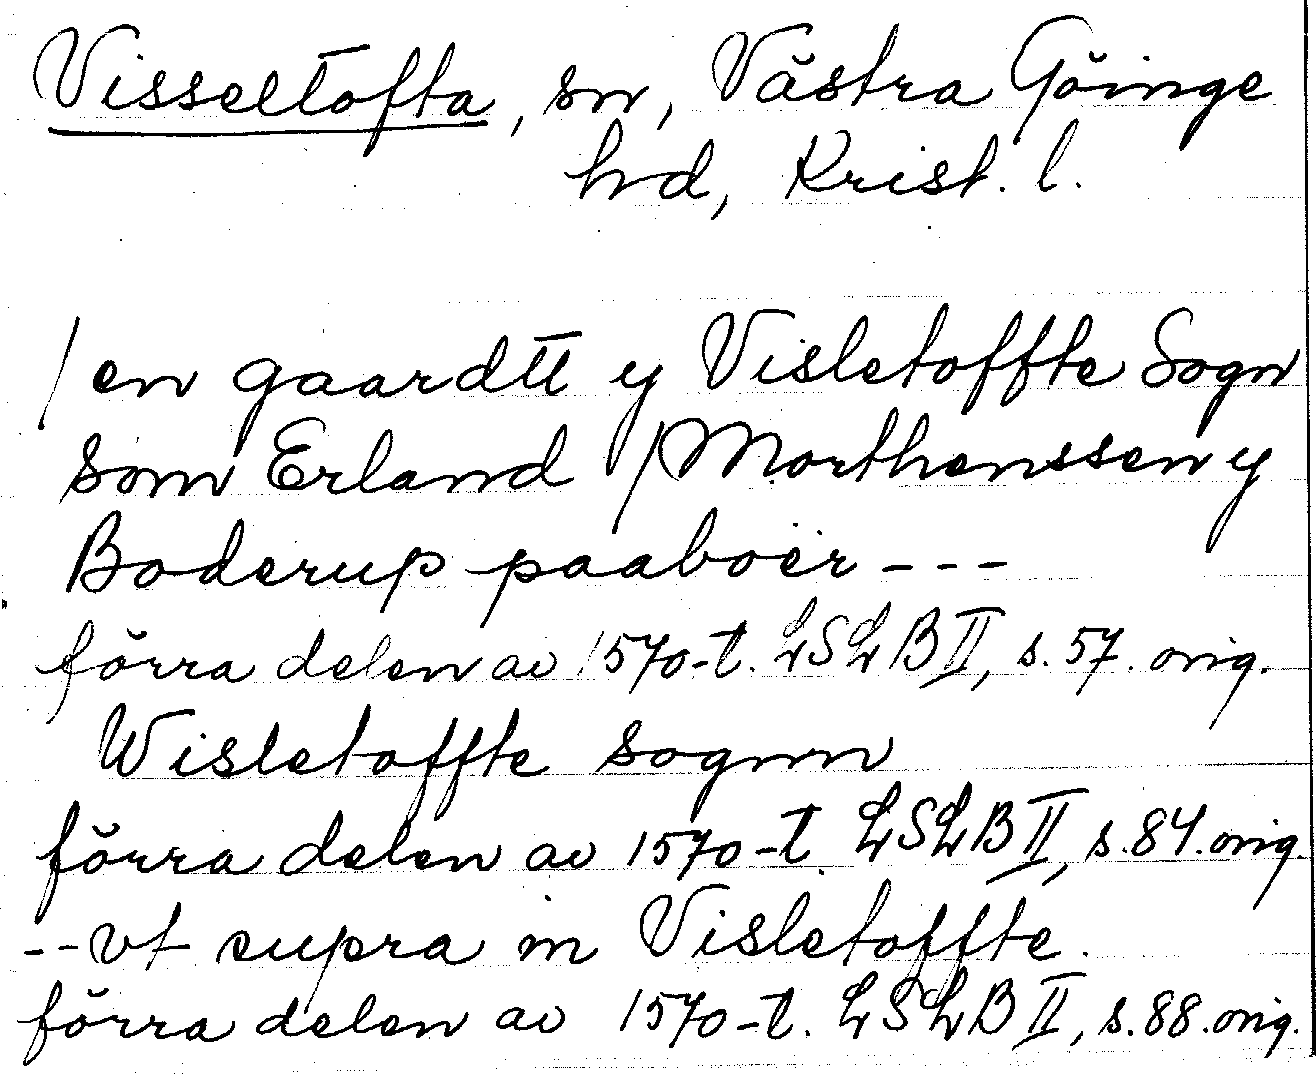 Visseltofta, sn, Västra Göinge
hd, Krist. l.
/ en gaardtt y Visletoffte Sogn
som Erland / Morthenssen y
Boderup paaboër - - -
förra delen av 1570-t. LSLB II, s. 57. orig.
Wisletoffte sognn
förra delen av 1570-t. LSLB II, s. 84. orig.
- - vt supra in Visletoffte.
förra delen av 1570-t. LSLB II, s. 88. orig.